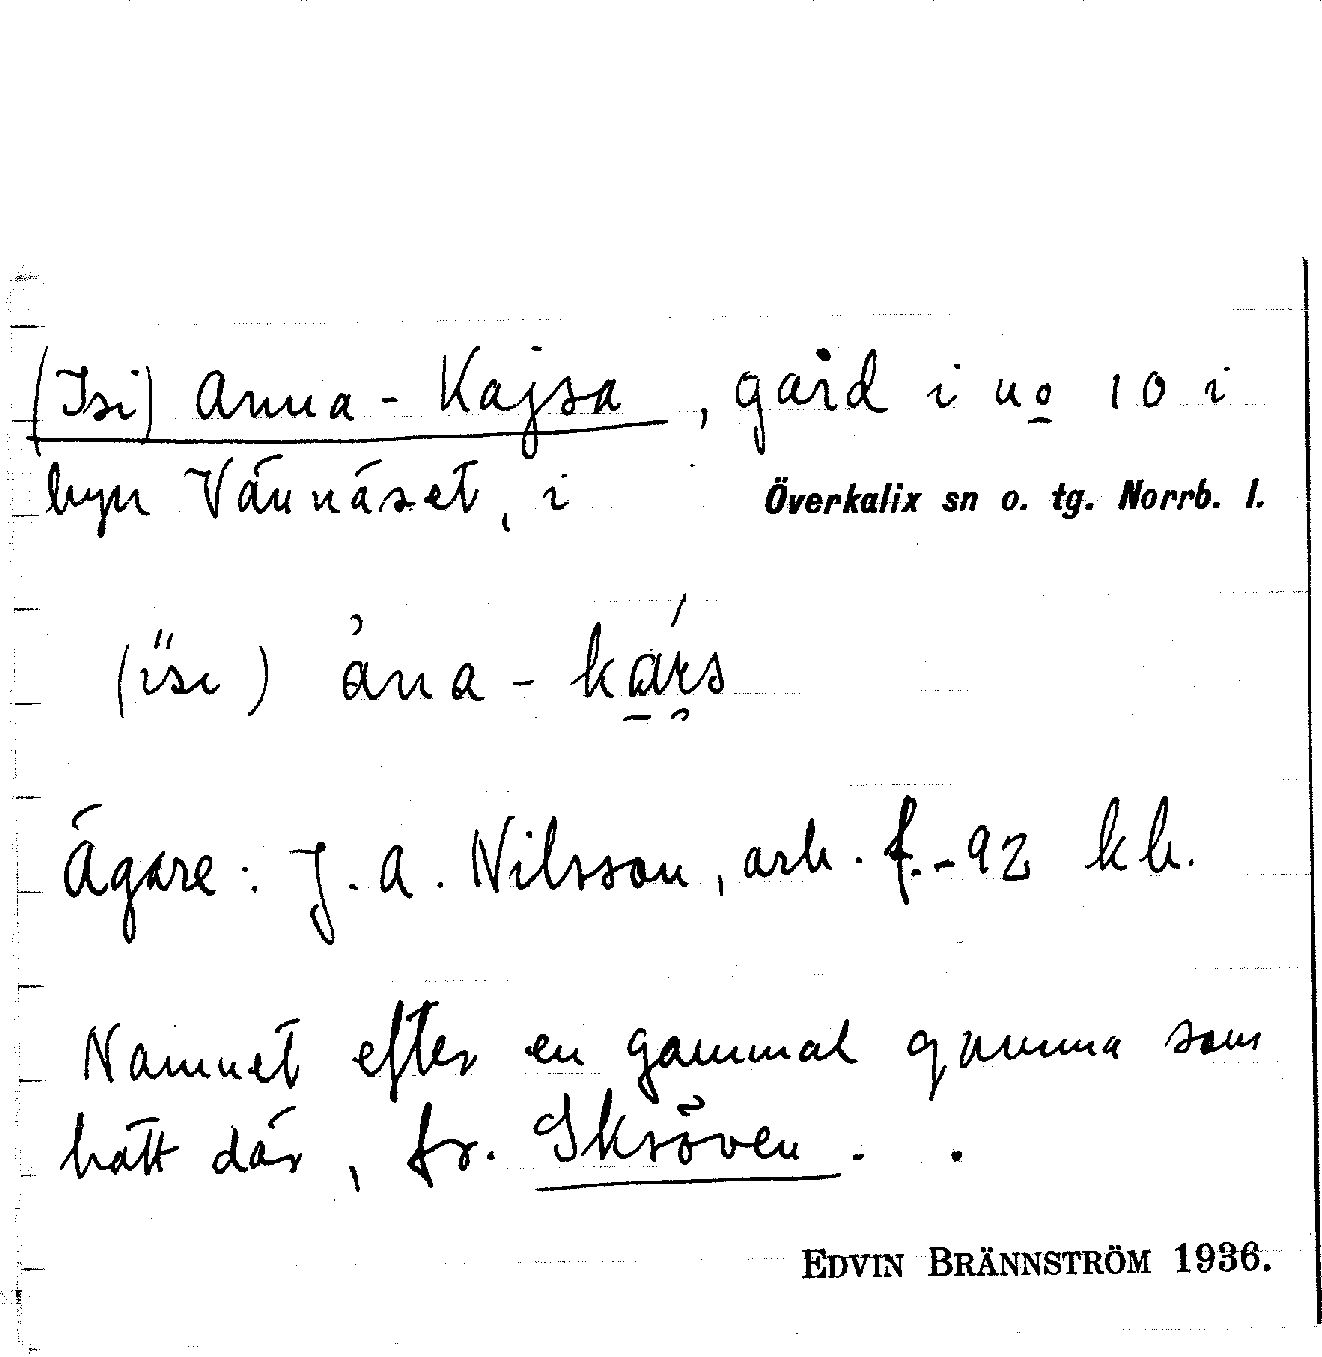 (Isi) Anna-Kajsa, gård i no 10 i
byn Vännäset, i Överkalix sn o. tg. Norrb. l.
(ïsi) àna-kárs
Ägare: J. A. Nilsson, arb. f. -92 kb.
Namnet efter en gammal gumma som
bott där, fr. Skröven.
EDVIN BRÄNNSTRÖM 1936.